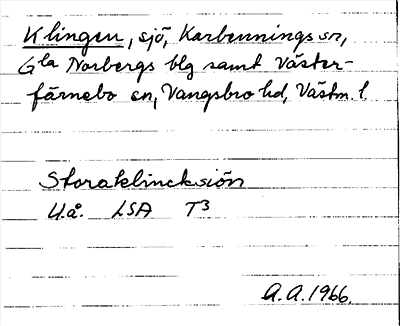 Klingen, sjö, Karbennings sn,
Gla Norbergs blg samt Väster-
färnebo sn, Vangsbro hd, Västm. l.
Storaklincksiön
U.å. LSA T3
A.A. 1966.